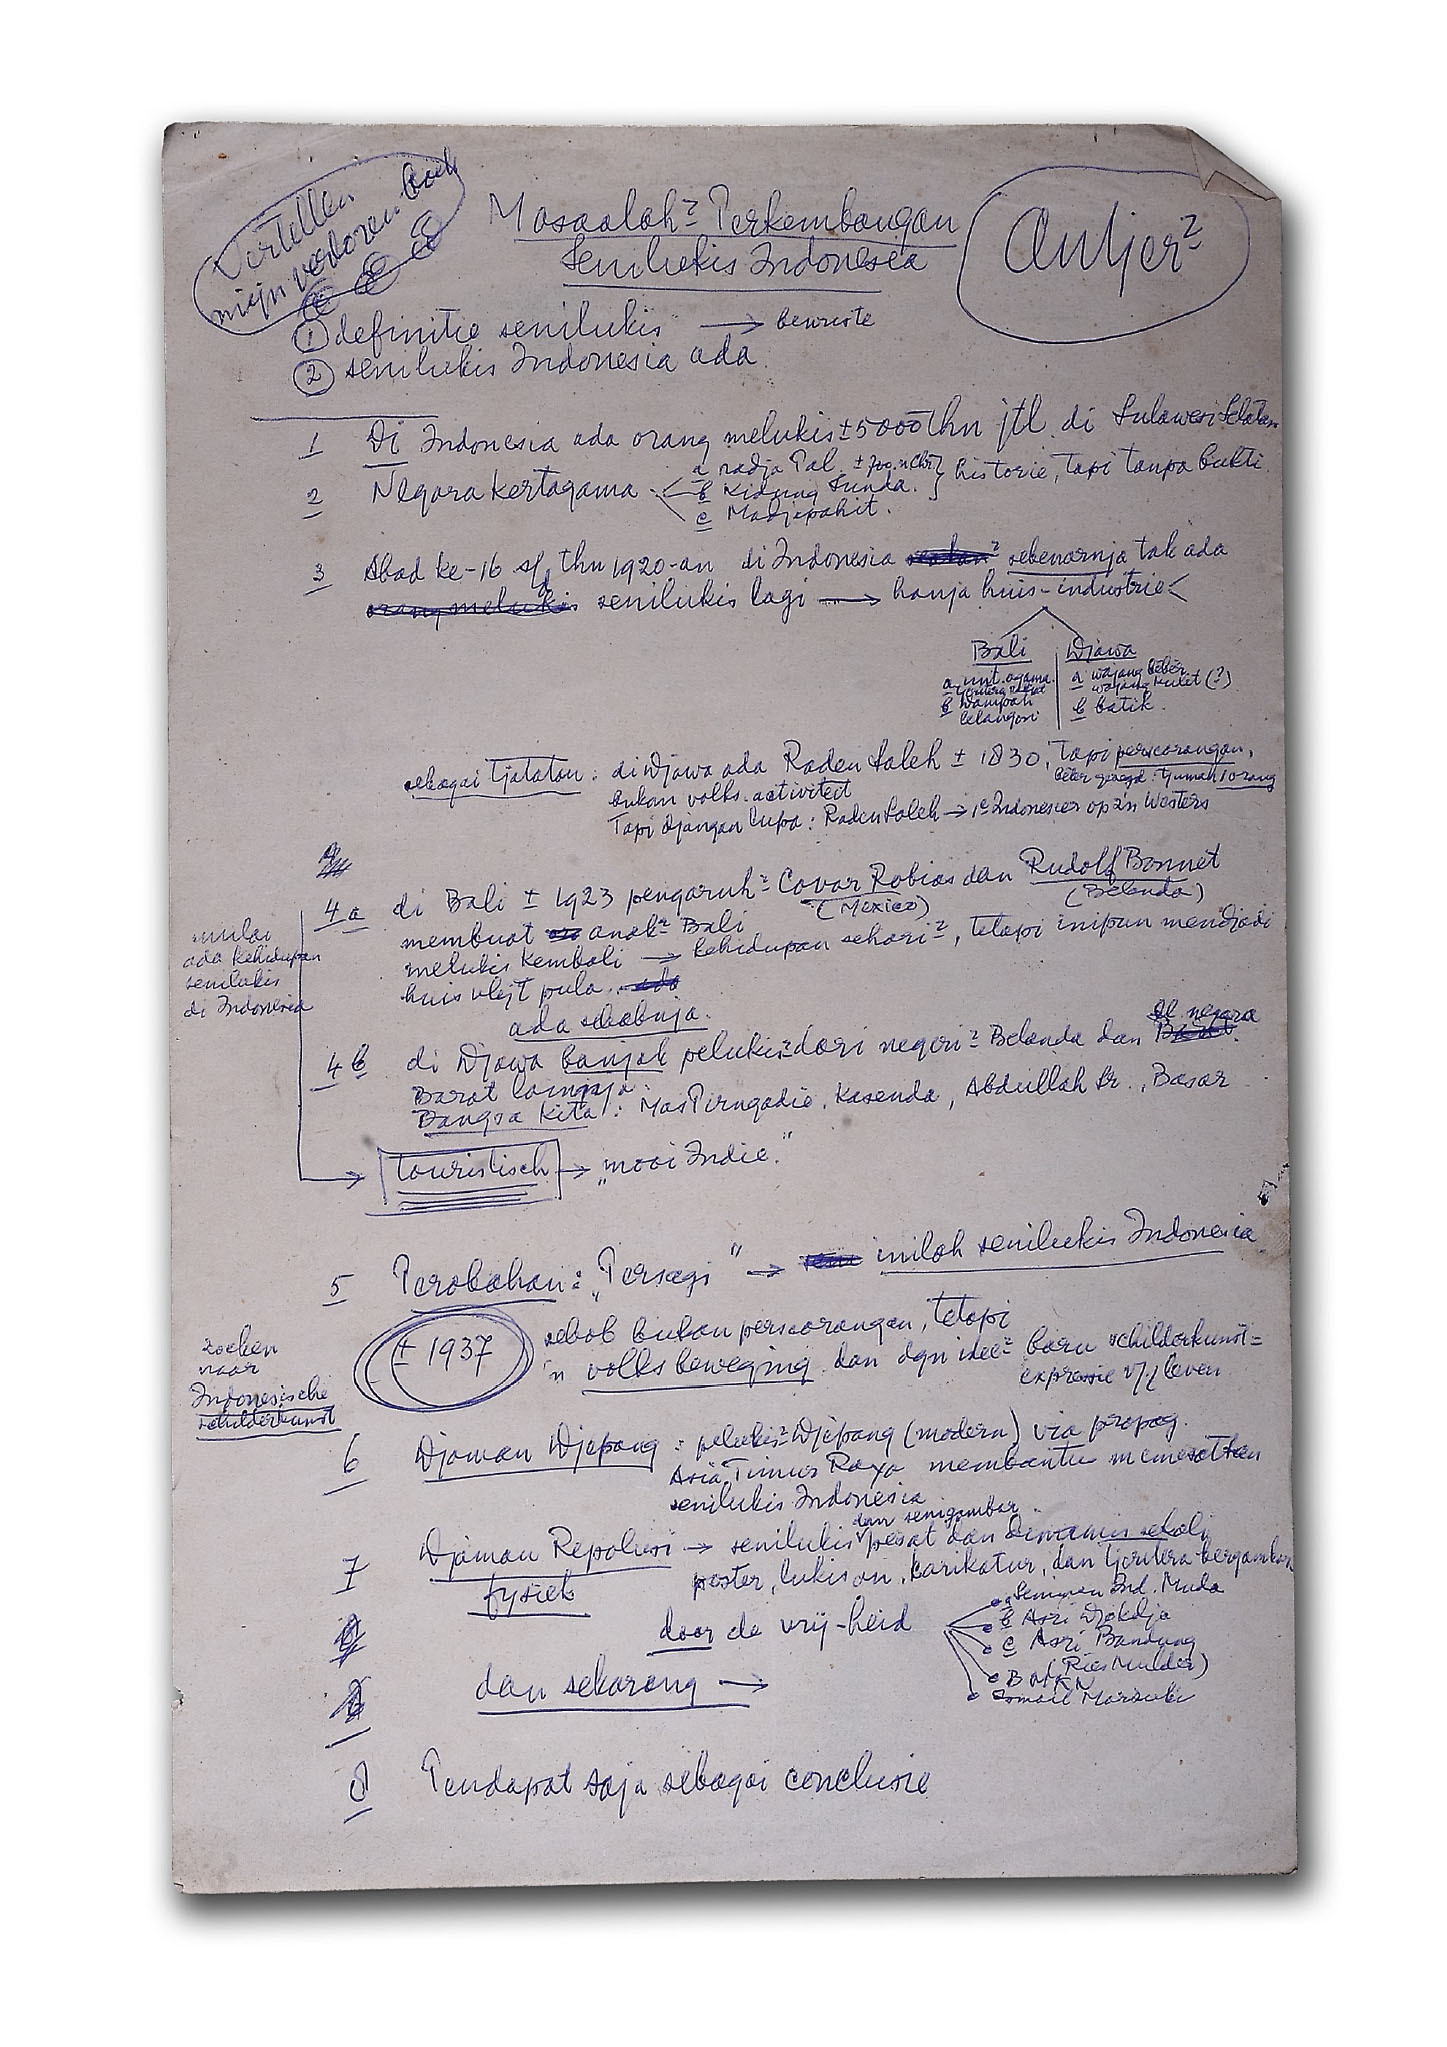 Vertellen
mijn verloren boek
Masaalah² Perkembangan
Senilukis Indonesia
Antjer²
1 definitie senilukis → bewuste
2 senilukis Indonesia ada.
1 Di Indonesia ada orang melukis ± 5000 thn jtl. di Sulawesi Selatan
2 Negara Kertagama
a radja Pal. ± 700 n Chr
b Kidung Sunda.
c Madjapahit.
} historie, tapi tanpa bukti.
3 Abad ke-16 s/d thn 1920-an di Indonesia sebenarnja tak ada
senilukis lagi → hanja huis-industrie <
Bali
a unt. agama.
b
lelangon
Djawa
a wajang bèbèr
wajang kulit (?)
b batik.
sebagai tjatatan: di Djawa ada Raden Saleh ± 1830, tapi perseorangan,
beter gezegd: tjumah 1 orang
bukan volks. activiteit
Tapi djangan lupa: Raden Saleh → 1e Indonesier op z'n Westers
mulai
ada kehidupan
senilukis
di Indonesia
4a di Bali ± 1923 pengaruh² Covar Robias dan Rudolf Bonnet
(Mexico) (Belanda)
membuat anak² Bali
melukis kembali → kehidupan sehari², tetapi inipun mendjadi
huis vlijt pula.
ada sebabnja.
4b di Djawa banjak pelukis² dari negeri² Belanda dan negara
Barat lainnja.
Bangsa Kita: Mas Pirngadie, Kasenda, Abdullah Sr., Basar
touristisch → "mooi Indie."
5 Perobahan: "Persagi" → inilah senilukis Indonesia
± 1937
sebab bukan perseorangan, tetapi
'n volks beweging dan dgn idee² baru schilderkunst =
expressie v/h leven
zoeken
naar
Indonesische
schilderkunst
6 Djaman Djepang: pelukis² Djepang (modern) via propag.
Asia Timur Raya membantu memesatkan
senilukis Indonesia
7 Djaman Repolusi → senilukis dan senigambar pesat dan dinamis sekali
fysiek
poster, lukisan, karikatur, dan tjeritera bergambar
door de vrij-heid
a Seniman Ind. Muda
b Asri Djokdja
c Asri Bandung
(Ries Mulder)
BMKN
Ismail Marzuki
dan sekarang →
8 Pendapat saja sebagai conclusie